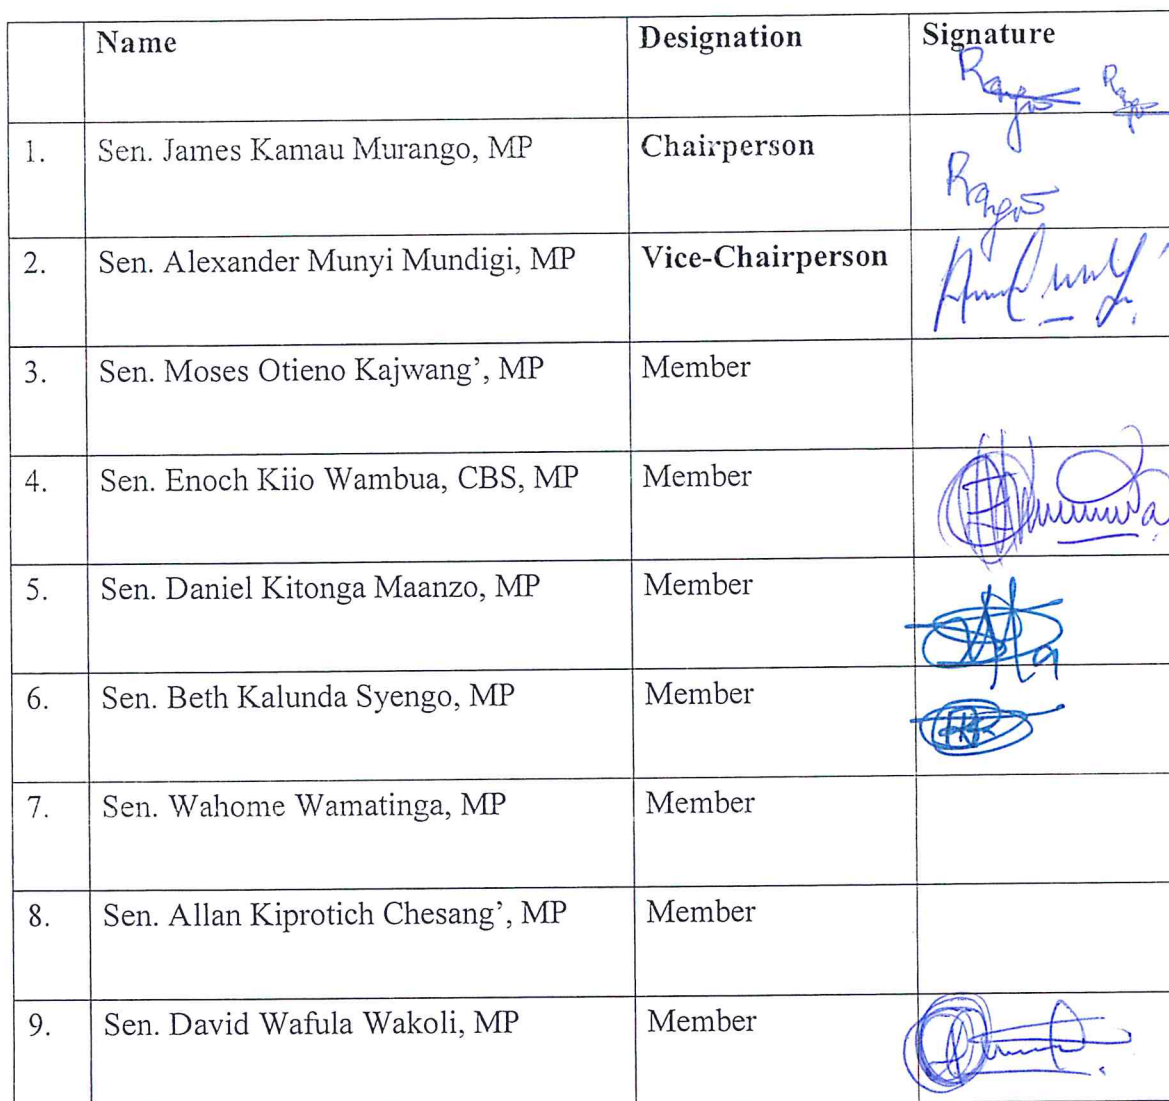 Name Designation Signature
1. Sen. James Kamau Murango, MP Chairperson
2. Sen. Alexander Munyi Mundigi, MP Vice-Chairperson
3. Sen. Moses Otieno Kajwang’, MP Member
4. Sen. Enoch Kiio Wambua, CBS, MP Member
5. Sen. Daniel Kitonga Maanzo, MP Member
6. Sen. Beth Kalunda Syengo, MP Member
7. Sen. Wahome Wamatinga, MP Member
8. Sen. Allan Kiprotich Chesang’, MP Member
9. Sen. David Wafula Wakoli, MP Member